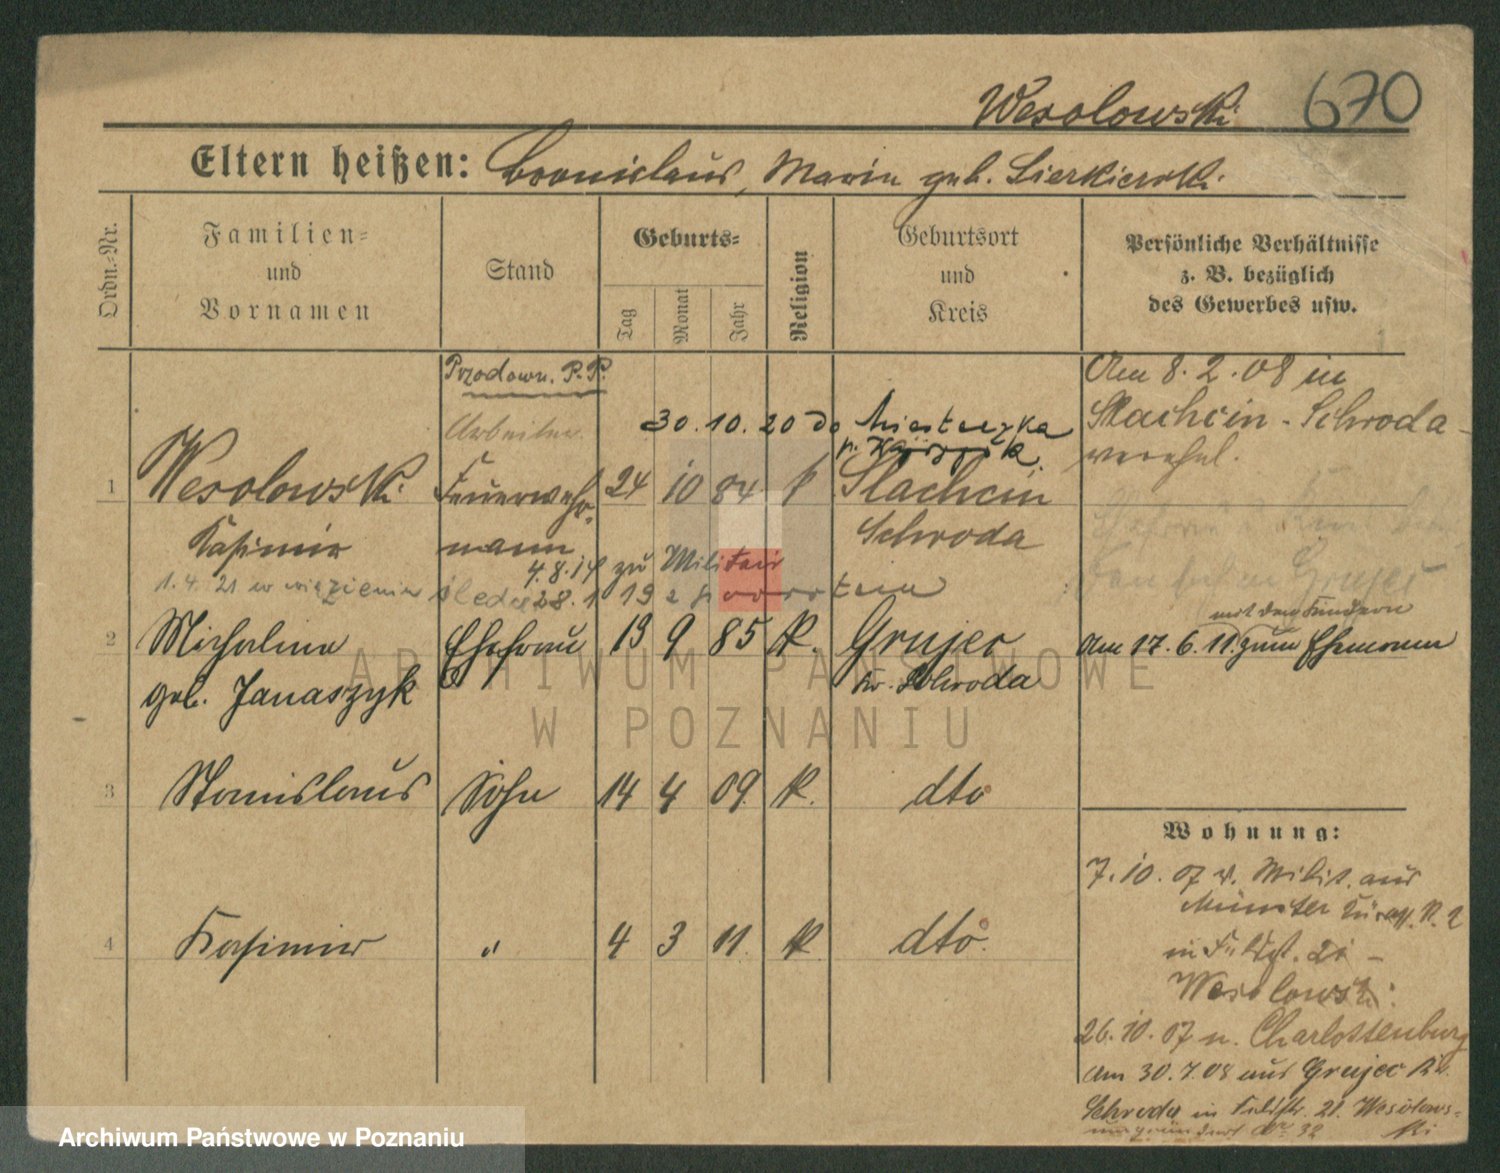 Wesolowski 670
Eltern heißen: Bronislaus, Maria geb. Sierkierski
Ordn.-Nr.
Familien-
und
Vornamen
Stand
Geburts-
Tag
Monat
Jahr
Religion
Geburtsort
und
Kreis
Persönliche Verhältnisse
z. B. bezüglich
des Gewerbes usw.
Przodown. P.P.
Arbeiter
30.10.20 do Miasteczka
1 Wesolowski Feuerwehr- 24 10 84 k Slachcin
Kasimir mann Schroda
4.8.14 zu Militair
1.4.21 w więzieniu
Am 8.2.08 in
Slachcin-Schroda
verehel.
2 Michalina Ehefrau 13 9 85 K. Grujec
geb. Janaszyk Kr. Schroda
mit den Kindern
Am 17.6.11 zum Ehemann
3 Stanislaus Sohn 14 4 09. K. dto
4 Kasimir " 4 3 11. K dto.
Wohnung:
7.10.07 v. Milit. aus
Münster Kürass. R.
in
Wesolowski.
26.10.07 n. Charlottenburg
Am 30.7.08 aus Grujec Kr.
Schroda in Feldstr. 21. Wesolows-
ki
ARCHIWUM PAŃSTWOWE
W POZNANIU
Archiwum Państwowe w Poznaniu